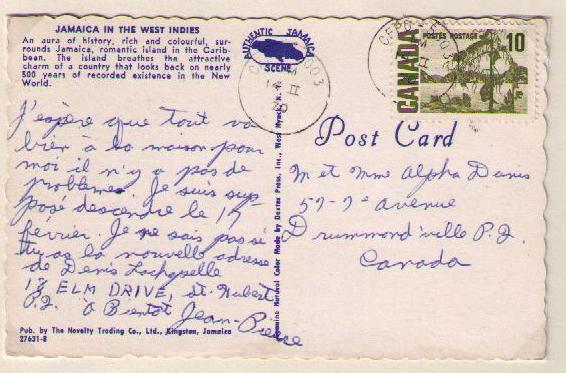 JAMAICA IN THE WEST INDIES
An aura of history, rich and colourful, sur-
rounds Jamaica, romantic island in the Carib-
bean. The island breathes the attractive
charm of a country that looks back on nearly
500 years of recorded existence in the New
World.
AUTHENTIC JAMAICA
SCENE
CANADA
POSTES POSTAGE
10
J'espère que tout va
bien à la maison pour
moi il n'y a pas de
problemes. Je suis sup
posé descendre le 19
février. Je ne sais pas si
tu as la nouvelle adresse
de Denis Lachapelle
12 ELM DRIVE, St. Hubert
P.Q. À Bientôt
Jean-Pierre
Pub. by The Novelty Trading Co., Ltd., Kingston, Jamaica
27631-B
Natural Color Made by Dexter Press, Inc., West Nyack, N. Y.
Post Card
M et Mme Alpha Denis
57-7e avenue
Drummondville P.Q.
Canada